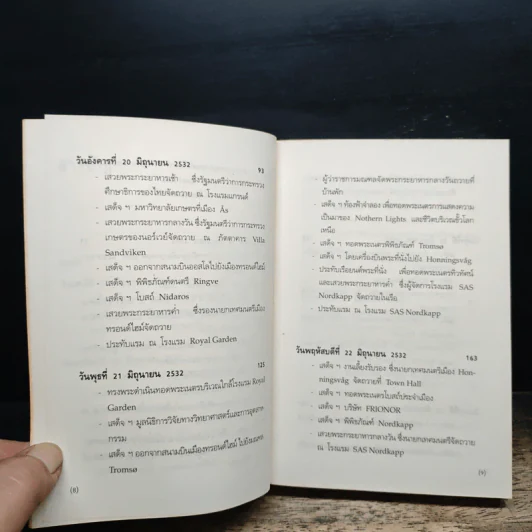 วันอังคารที่ 20 มิถุนายน 2532 93
- เสวยพระกระยาหารเช้า ซึ่งรัฐมนตรีว่าการกระทรวง
ศึกษาธิการของไทยจัดถวาย ณ โรงแรมแกรนด์
- เสด็จ ฯ มหาวิทยาลัยเกษตรที่เมือง Ås
- เสวยพระกระยาหารกลางวัน ซึ่งรัฐมนตรีว่าการกระทรวง
เกษตรของนอร์เวย์จัดถวาย ณ ภัตตาคาร Villa
Sandviken
- เสด็จ ฯ ออกจากสนามบินออสโลไปยังเมืองทรอนด์ไฮม์
- เสด็จ ฯ พิพิธภัณฑ์ดนตรี Ringve
- เสด็จ ฯ โบสถ์ Nidaros
- เสวยพระกระยาหารค่ำ ซึ่งรองนายกเทศมนตรีเมือง
ทรอนด์ไฮม์จัดถวาย
- ประทับแรม ณ โรงแรม Royal Garden
วันพุธที่ 21 มิถุนายน 2532 125
- ทรงพระดำเนินทอดพระเนตรบริเวณใกล้โรงแรม Royal
Garden
- เสด็จ ฯ มูลนิธิการวิจัยทางวิทยาศาสตร์และอุตสาห
กรรม
- เสด็จ ฯ ออกจากสนามบินเมืองทรอนด์ไฮม์ ไปยังเมือง
Tromsø
(8)
- ผู้ว่าราชการมณฑลจัดพระกระยาหารกลางวันถวายที่
บ้านพัก
- เสด็จ ฯ ท้องฟ้าจำลอง เพื่อทอดพระเนตรการแสดงความ
เป็นมาของ Nothern Lights และชีวิตบริเวณขั้วโลก
เหนือ
- เสด็จ ฯ ทอดพระเนตรพิพิธภัณฑ์ Tromsø
- เสด็จ ฯ โดยเครื่องบินพระที่นั่งไปยัง Honningsvåg
- ประทับเรือยนต์พระที่นั่ง เพื่อทอดพระเนตรทิวทัศน์
และเสวยพระกระยาหารค่ำ ซึ่งผู้จัดการโรงแรม SAS
Nordkapp จัดถวายในเรือ
- ประทับแรม ณ โรงแรม SAS Nordkapp
วันพฤหัสบดีที่ 22 มิถุนายน 2532 163
- เสด็จ ฯ งานเลี้ยงรับรอง ซึ่งนายกเทศมนตรีเมือง Hon-
ningsvåg จัดถวายที่ Town Hall
- เสด็จ ฯ ทอดพระเนตรโบสถ์ประจำเมือง
- เสด็จ ฯ บริษัท FRIONOR
- เสด็จ ฯ พิพิธภัณฑ์ Nordkapp
- เสวยพระกระยาหารกลางวัน ซึ่งนายกเทศมนตรีจัดถวาย
ณ โรงแรม SAS Nordkapp
(9)